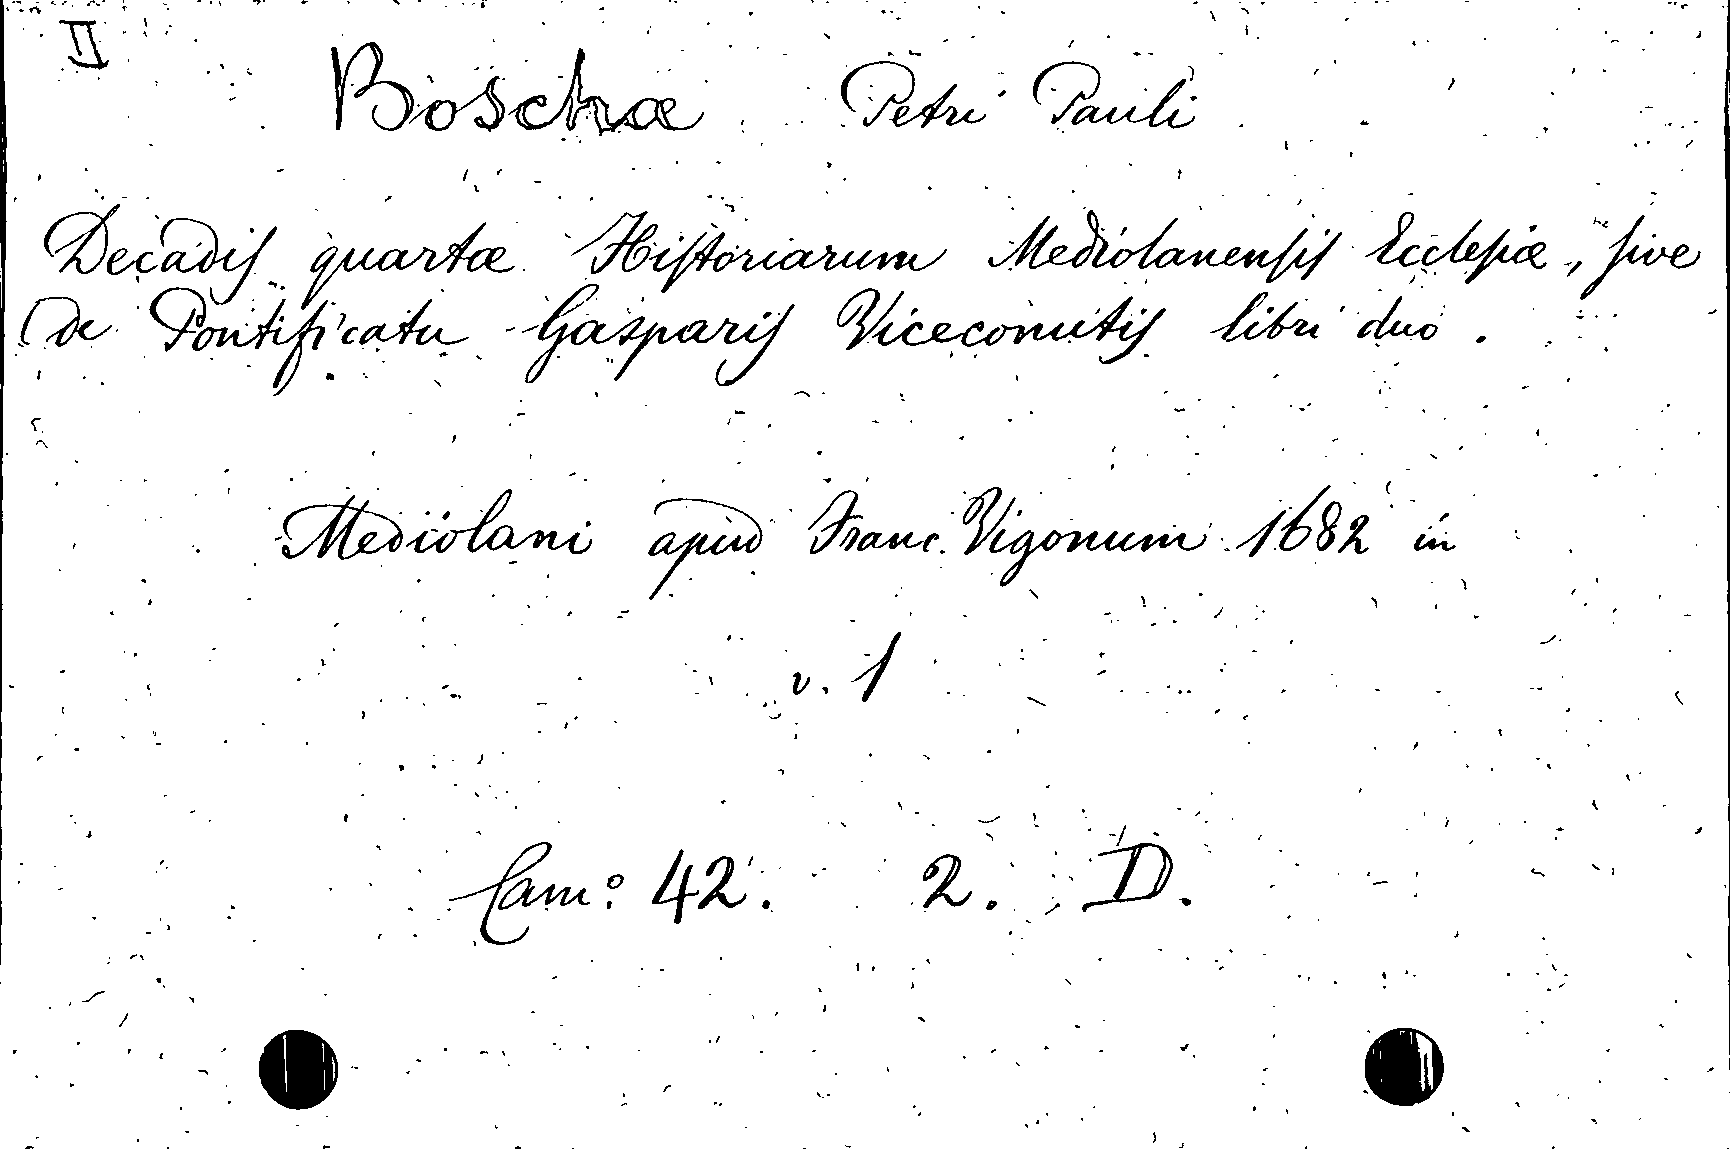 II
Boschæ Petri Pauli
Decadis quartæ Historiarum Mediolanensis Ecclesiæ, sive
de Pontificatu Gasparis Vicecomitis libri duo.
Mediolani apud Franc. Vigonum 1682 in
v. 1
Cam: 42. 2. D.